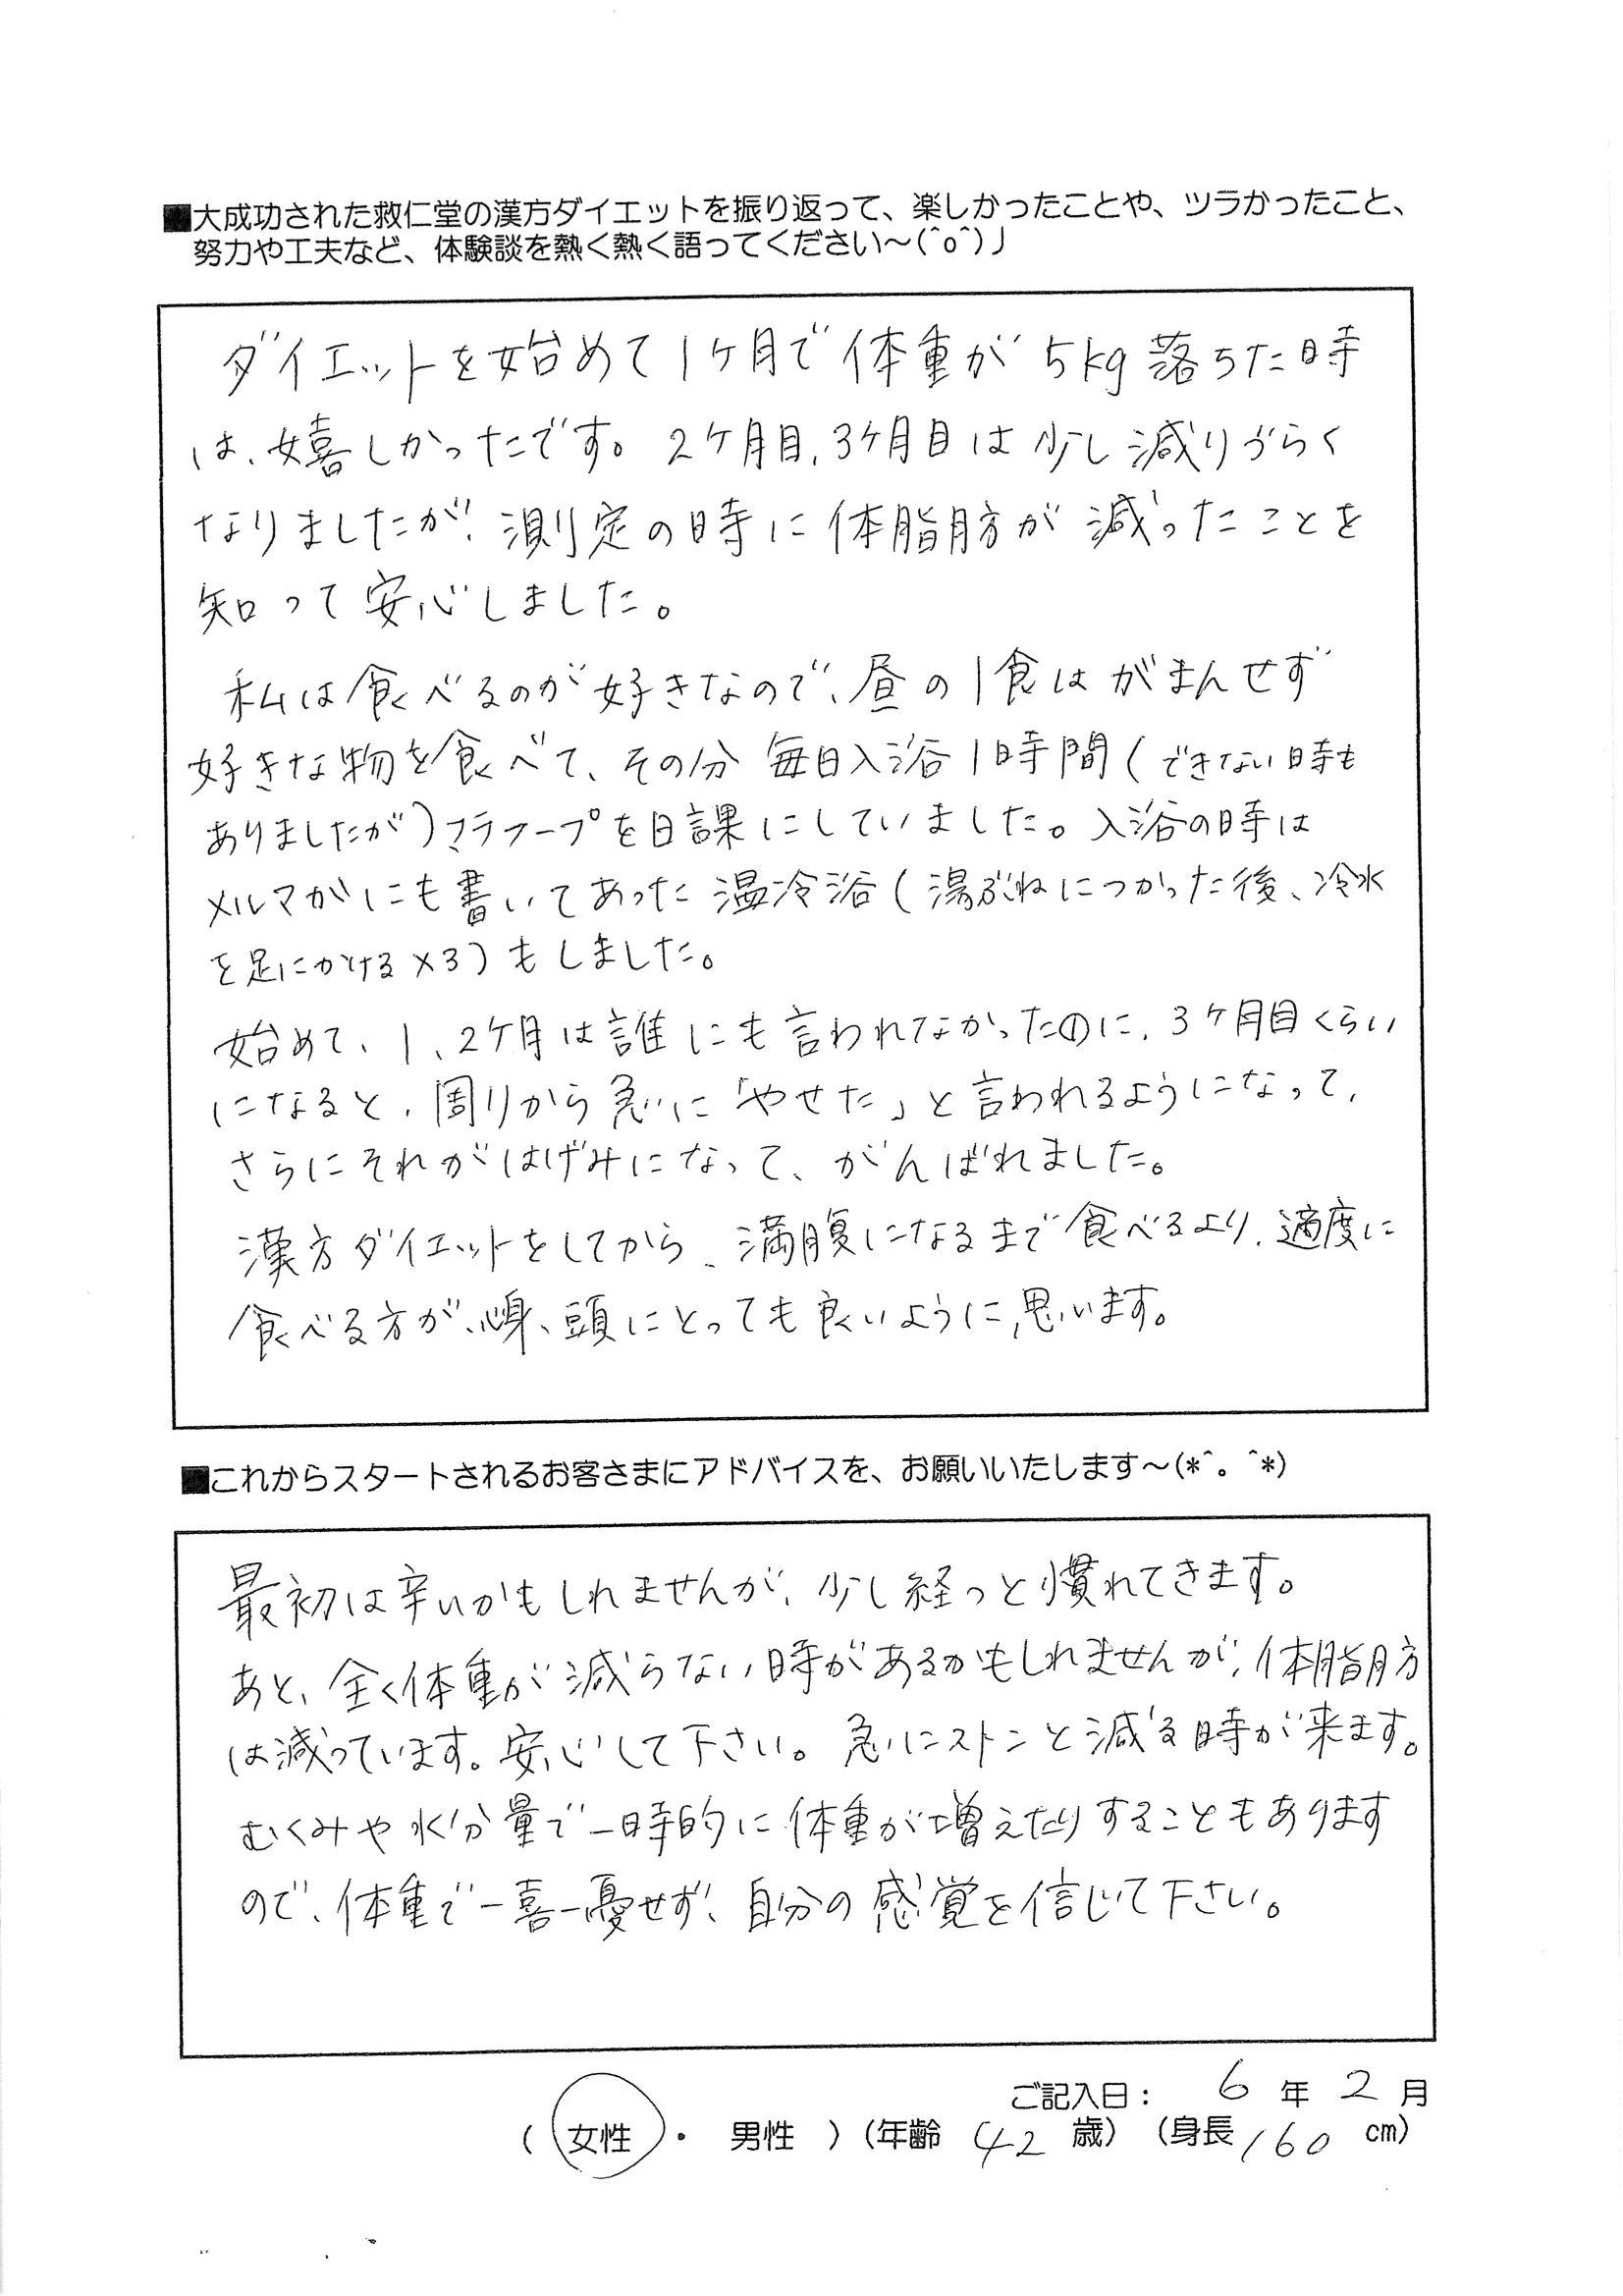 ■大成功された救仁堂の漢方ダイエットを振り返って、楽しかったことや、ツラかったこと、
努力や工夫など、体験談を熱く熱く語ってください～(^o^)丿
ダイエットを始めて1ヶ月で体重が5kg落ちた時
は、嬉しかったです。2ヶ月目、3ヶ月目は少し減りづらく
なりましたが、測定の時に体脂肪が減ったことを
知って安心しました。
私は食べるのが好きなので、昼の1食はがまんせず
好きな物を食べて、その分毎日入浴1時間(できない時も
ありましたが)フラフープを日課にしていました。入浴の時は
メルマガにも書いてあった温冷浴(湯ぶねにつかった後、冷水
を足にかける×3)もしました。
始めて、1、2ヶ月は誰にも言われなかったのに、3ヶ月目くらい
になると、周りから急に「やせた」と言われるようになって、
さらにそれがはげみになって、がんばれました。
漢方ダイエットをしてから、満腹になるまで食べるより、適度に
食べる方が、心身、頭にとっても良いように思います。
■これからスタートされるお客さまにアドバイスを、お願いいたします～(*^。^*)
最初は辛いかもしれませんが、少し経つと慣れてきます。
あと、全く体重が減らない時があるかもしれませんが、体脂肪
は減っています。安心して下さい。急にストンと減る時が来ます。
むくみや水分量で一時的に体重が増えたりすることもあります
ので、体重で一喜一憂せず、自分の感覚を信じて下さい。
ご記入日: 6年2月
(女性・男性)(年齢 42歳)(身長160cm)